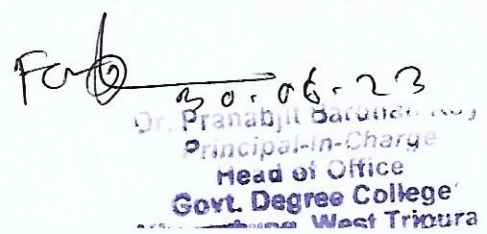 30.06.23
Dr. Pranabjit
Principal-in-Charge
Head of Office
Govt. Degree College
West Tripura